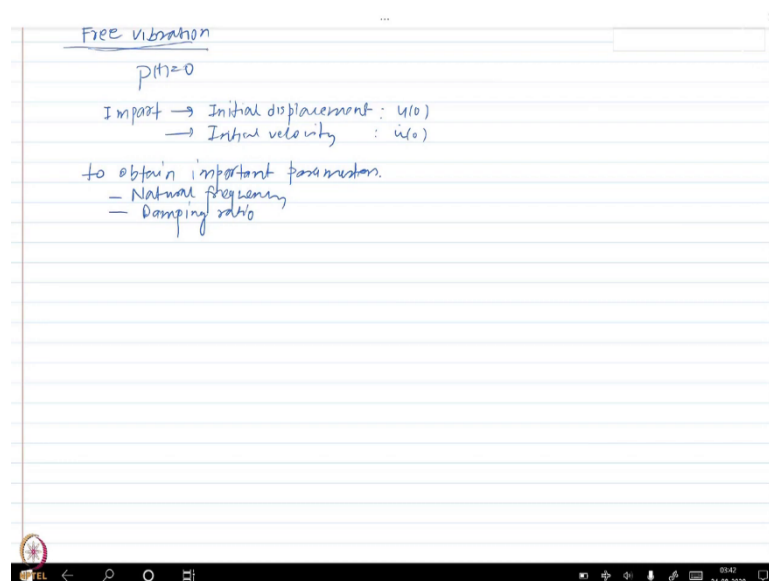 ...
Free vibration
p(t)=0
Impart → Initial displacement : u(0)
→ Initial velocity : u̇(0)
to obtain important parameters.
– Natural frequency
– Damping ratio
NPTEL
03:42